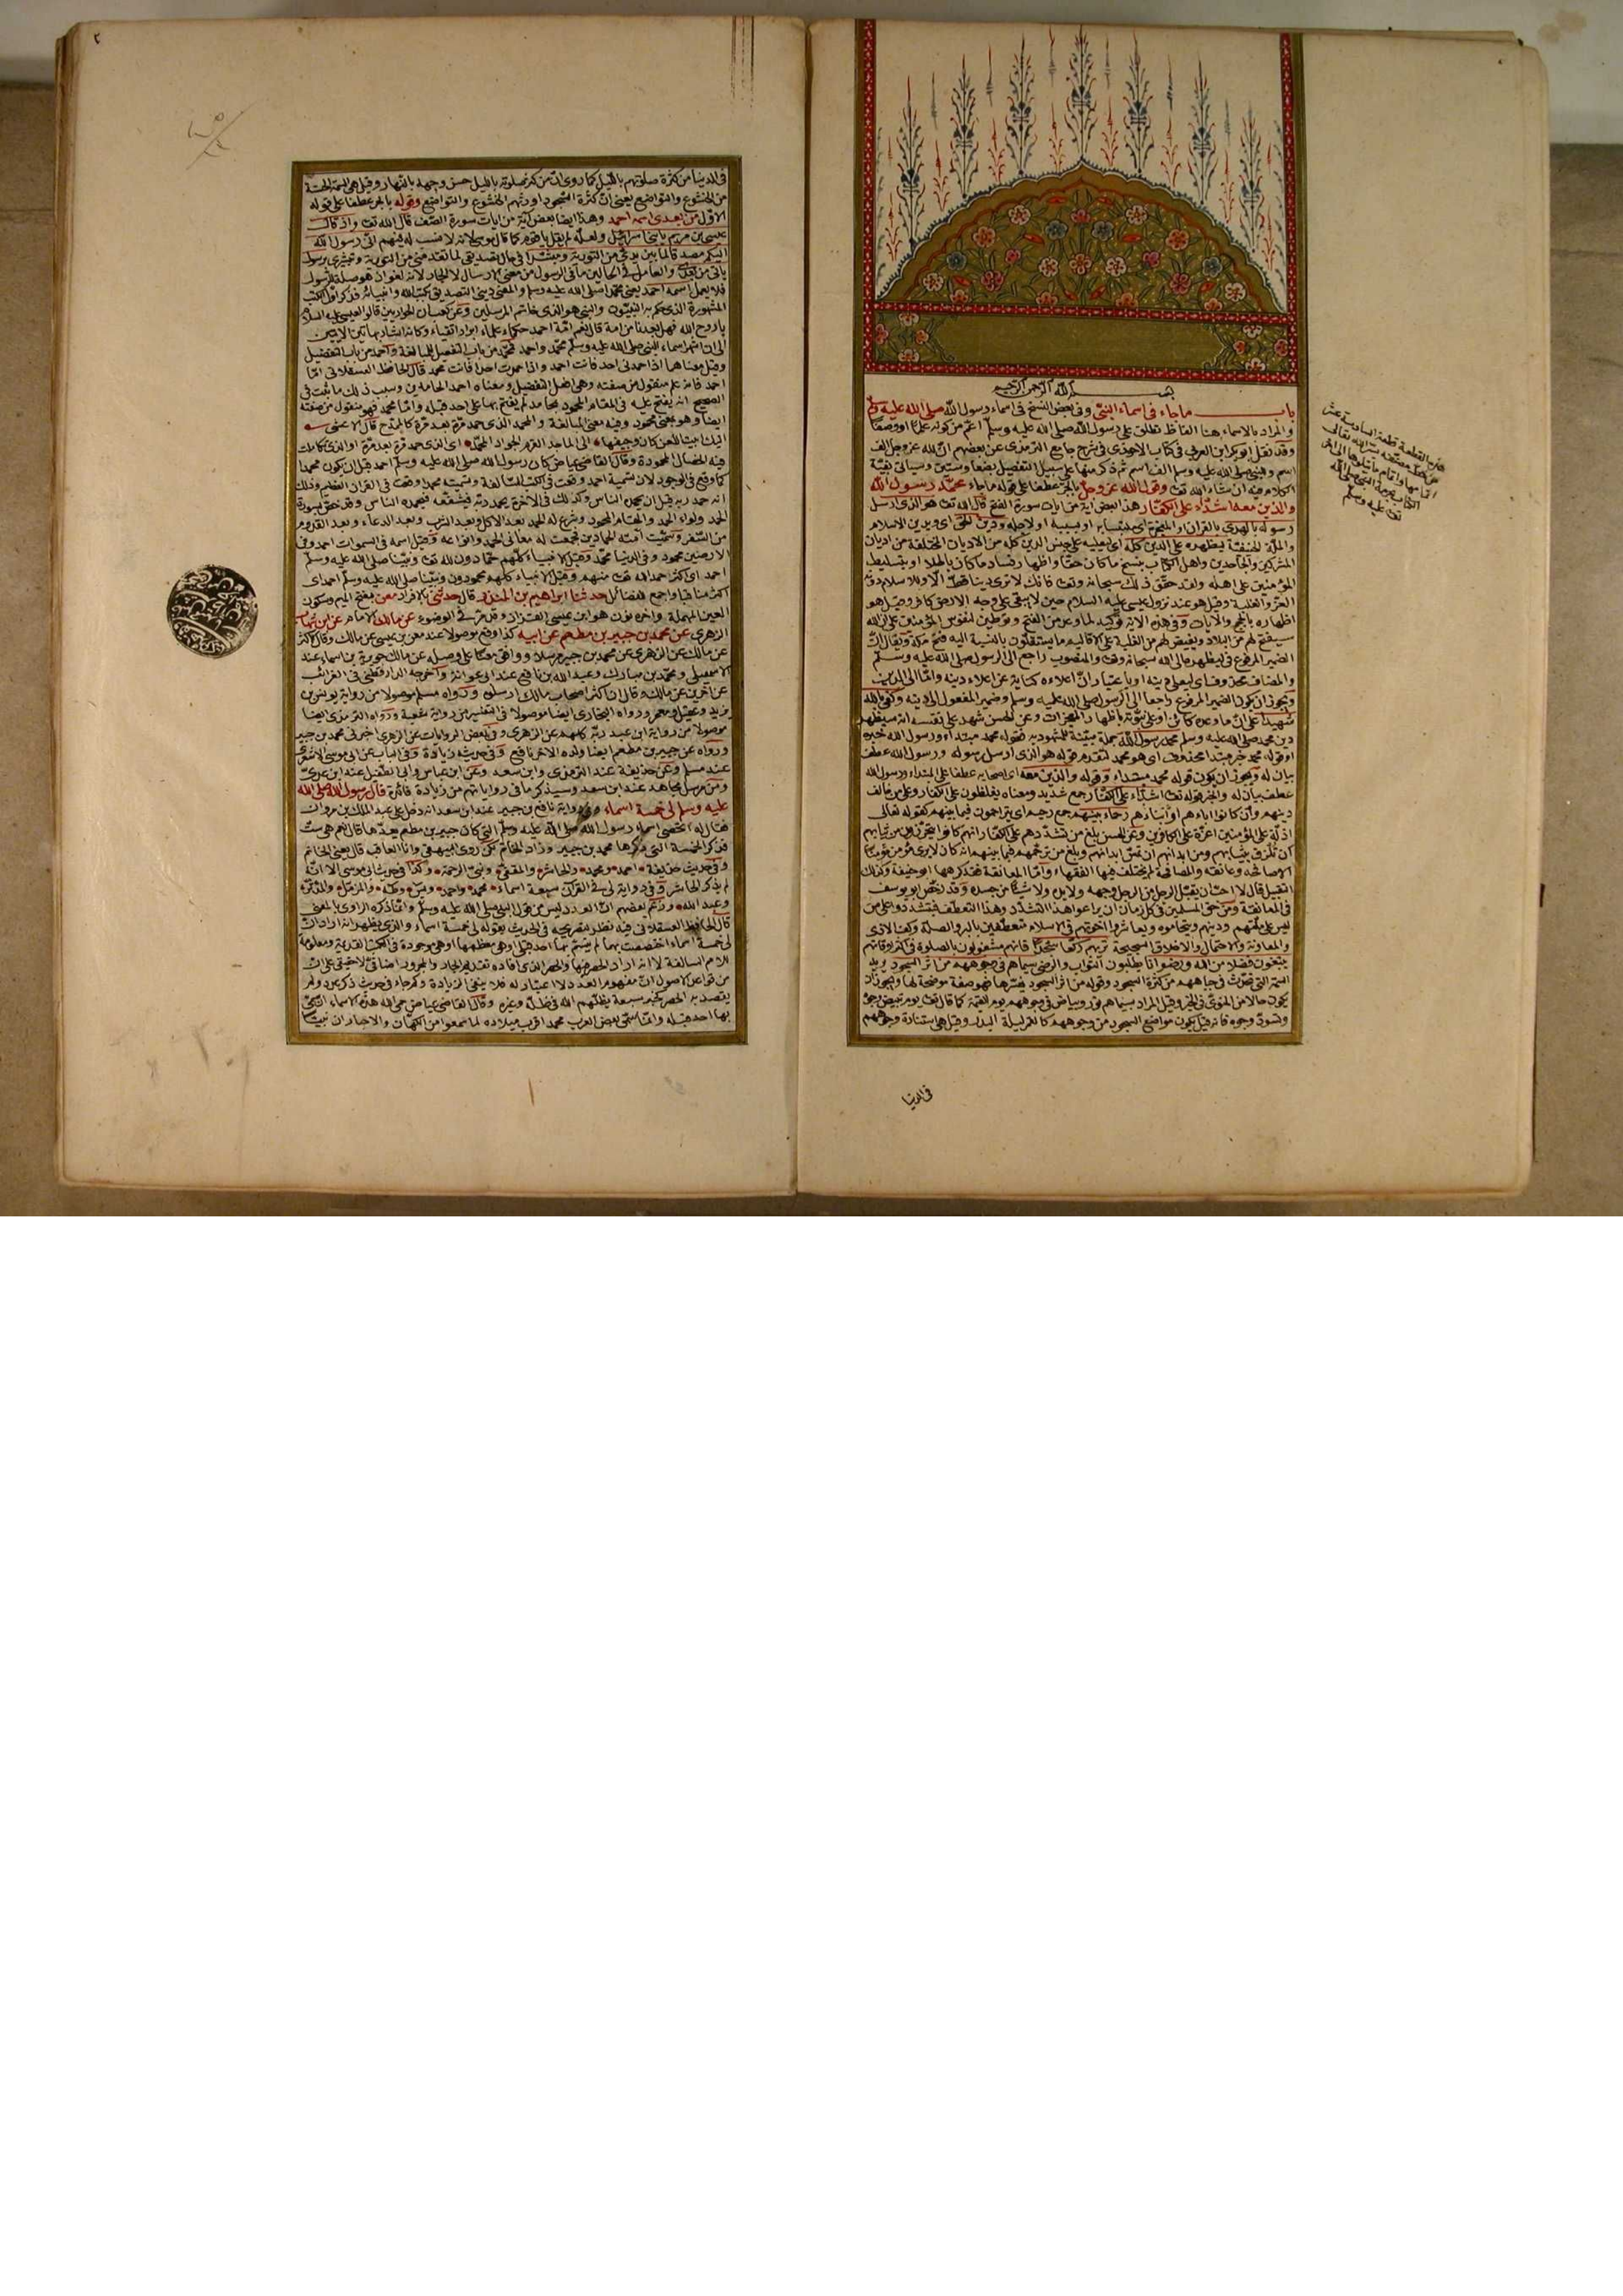 بسم الله الرحمن الرحيم
باب ما جاء في اسماء النبي وفي بعض النسخ في اسماء رسول الله صلى الله عليه وسلم
والمراد بالاسماء هنا الفاظ تطلق على رسول الله صلى الله عليه وسلم اعم من كونه علما او وصفا
وقد نقل ابو بكر ابن العربي في كتاب الاحوذي في شرح جامع الترمذي عن بعضهم ان لله عز وجل الف
اسم وللنبي صلى الله عليه وسلم الف اسم ثم ذكر منها على سبيل التفصيل بضعا وستين وسيأتي بقية
الكلام فيه ان شاء الله تعـ وقول الله عز وجل بالجر عطفا على قوله ما جاء محمد رسول الله
والذين معه اشداء على الكفار هذا البعض اية من ايات سورة الفتح قال الله تعـ هو الذي ارسل
رسوله بالهدى بالقران
والملة الحنفية ليظهره على الدين كله اي ليعليه على جنس الدين كله من الاديان المختلفة من اديان
المشركين والجاحدين واهل الكتاب بنسخ ما كان حقا واظهار فساد ما كان باطلا او بتسليط
المؤمنين على اهله ولقد حقق ذلك سبحانه وتعـ فانك لا ترى دينا قط الا وللاسلام دونه
العز والغلبة وقيل هو عند نزول عيسى عليه السلام حين لا يبقى على وجه الارض كافر وقيل هو
اظهاره بالحجج والايات وفي هذه الاية توكيد لما وعد من الفتح وتوطين لنفوس المؤمنين على ان الله
سيفتح لهم من البلاد ويقيض لهم من الغلبة على الاقاليم ما يستقلون بالنسبة اليه فتح مكة
الضمير المرفوع في ليظهره الى الله سبحانه وتعـ والمنصوب راجع الى الرسول صلى الله عليه وسلم
ويجوز ان يكون الضمير المرفوع راجعا الى الرسول صلى الله عليه وسلم وضمير المفعول الى دينه وكفى بالله
شهيدا على ان ما وعده كائن او على نبوته باظهار المعجزات وعن الحسن شهد على نفسه انه سيظهر
دين محمد صلى الله عليه وسلم محمد رسول الله جملة مبينة للمشهود به فقوله محمد مبتداء ورسول الله خبره
او قوله محمد خبر مبتدا محذوف اي هو محمد لتقدم قوله هو الذي ارسل رسوله ورسول الله عطف
بيان له ويجوز ان يكون قوله محمد مبتداء وقوله والذين معه اي اصحابه عطفا على المبتداء ورسول الله
عطف بيان له والخبر قوله تعـ اشداء على الكفار جمع شديد ومعناه يغلظون على الكفار وعلى من خالف
دينهم وان كانوا اباءهم او ابناءهم رحماء بينهم جمع رحيم اي يتراحمون فيما بينهم كقوله تعالى
اذلة على المؤمنين اعزة على الكافرين وعن الحسن بلغ من تشددهم على الكفار انهم كانوا يتحرزون من ثيابهم
ان تلزق بثيابهم ومن ابدانهم ان تمس ابدانهم وبلغ من ترحمهم فيما بينهم انه كان لا يرى مؤمن مؤمنا
الا صافحه وعانقه والمصافحة لم يختلف فيها الفقهاء واما المعانقة فقد كرهها ابو حنيفة وكذلك
التقبيل قال لا احب ان يقبل الرجل من الرجل وجهه ولا يده ولا شيئا من جسده وقد رخص ابو يوسف
في المعانقة ومن حق المسلمين في كل زمان ان يراعوا هذا التشدد وهذا التعطف فيتشددوا على من
ليس على ملتهم ودينهم ويتحاموه ويعاشروا اخوتهم في الاسلام متعطفين بالبر والصلة وكف الاذى
والمعاونة والاحتمال والاخلاق السجيحة تريهم ركعا سجدا لانهم مشغولون بالصلوة في اكثر اوقاتهم
يبتغون فضلا من الله ورضوانا يطلبون الثواب والرضى سيماهم في وجوههم من اثر السجود يريد
السمة التي تحدث في جباههم من كثرة السجود وقوله من اثر السجود يفسرها
يكون حالا من المنوي في الخبر وقيل المراد سيماهم نور وبياض في وجوههم يوم القيمة كما قال تعـ يوم تبيض وجوه
وتسود وجوه فانه قيل يكون مواضع السجود من وجوههم كالقمر ليلة البدر وقيل هي استنارة وجوههم
في الدنيا
في الدنيا من كثرة صلوتهم بالليل كما روي ان من كثر صلوته بالليل حسن وجهه بالنهار وقيل هي السمة الحسنة
من الخشوع والتواضع يعني ان كثرة السجود اورثهم الخشوع والتواضع وقوله بالجر عطفا على قوله
الاول من بعدي اسمه احمد وهذا ايضا بعض اية من ايات سورة الصف قال الله تعـ واذ قال
عيسى بن مريم يا بني اسرائيل ولعله لم يقل يا قوم كما قال موسى لانه لا نسب له فيهم اني رسول الله
اليكم مصدقا لما بين يدي من التورية ومبشرا في حال تصديقي لما تقدمني من التورية وتبشيري برسول
يأتي من بعدي والعامل في الحالين ما في الرسول من معنى الارسال لا الجار لانه لغو اذ هو صلة للرسول
فلا يعمل اسمه احمد يعني محمدا صلى الله عليه وسلم والمعنى ديني التصديق بكتب الله وانبيائه فذكر اول الكتب
المشهورة الذي حكم به النبيون والنبي هو الذي خاتم المرسلين وعن كعب ان الحواريين قالوا لعيسى عليه السلام
يا روح الله فهل بعدنا من امة قال نعم امة احمد حكماء علماء ابرار اتقياء
اشهر اسماء النبي صلى الله عليه وسلم محمد واحمد فمحمد من باب التفعيل للمبالغة واحمد من باب التفضيل
وقيل معناهما اذا حمدني احد فانت احمد واذا حمدت احدا فانت محمد قال الحافظ العسقلاني اما
احمد فانه علم منقول من صفته وهي افعل التفضيل ومعناه احمد الحامدين وسبب ذلك ما ثبت في
الصحيح انه يفتح عليه في المقام المحمود بمحامد لم يفتح بها على احد قبله واما محمد فهو منقول من صفته
ايضا وهو بمعنى محمود وفيه معنى المبالغة والمحمد الذي حمد مرة بعد مرة كالممدح قال الاعشى
اليك ابيت اللعن كان وجيفها الى الماجد القرم الجواد المحمد اي الذي حمد مرة بعد مرة او الذي تكاملت
فيه الخصال المحمودة وقال القاضي عياض كان رسول الله صلى الله عليه وسلم احمد قبل ان يكون محمدا
كما وقع في الوجود لان تسمية احمد وقعت في الكتب السالفة وتسميته محمدا وقعت في القران العظيم وذلك
انه حمد ربه قبل ان يحمده الناس وكذلك في الاخرة يحمد ربه فيشفعه فيحمده الناس وقد خص بسورة
الحمد ولواء الحمد والمقام المحمود وشرع له الحمد بعد الاكل وبعد الشرب وبعد الدعاء وبعد القدوم
من السفر وسميت امته الحمادين فجمعت له معاني الحمد وانواعه وقيل اسمه في السموات احمد وفي
الارضين محمود وفي الدنيا محمد وقيل الانبياء كلهم حمادون لله تعـ ونبينا صلى الله عليه وسلم
احمد اي اكثر حمدا لله تعـ منهم وقيل الانبياء كلهم محمودون ونبينا صلى الله عليه وسلم احمد اي
اكثر مناقبا واجمع لفضائل حدثنا ابراهيم بن المنذر قال حدثني بالافراد معن بفتح الميم وسكون
العين المهملة واخره نون هو ابن عيسى القزاز وقد مر في الوضوء عن مالك الامام عن ابن شهاب
الزهري عن محمد بن جبير بن مطعم عن ابيه كذا وقع موصولا عند معن بن عيسى عن مالك وقال الاكثر
عن مالك عن الزهري عن محمد بن جبير مرسلا ووافق معنا على وصله عن مالك جويرية بن اسماء عند
الاسمعيلي ومحمد بن مبارك وعبد الله بن نافع عند ابي عوانة واخرجه الدارقطني في الغرائب
عن اخرين عن مالك وقال ان اكثر اصحاب مالك ارسلوه ورواه مسلم موصولا من رواية يونس بن
يزيد وعقيل ومعمر ورواه البخاري ايضا موصولا في التفسير من رواية شعيبة ورواه الترمذي ايضا
موصولا من رواية ابن عيينة كلهم عن الزهري وفي بعض الروايات عن الزهري اخبرني محمد بن جبير
ورواه عن جبير بن مطعم ايضا ولده الاخر نافع وفي حديثه زيادة وفي الباب عن ابي موسى الاشعري
عند مسلم وعن حذيفة عند الترمذي وابن سعد وعن ابن عباس وابي الطفيل عند ابن عدي
ومن مرسل مجاهد عند ابن سعد وسيذكر ما في رواياتهم من زيادة فائدة قال رسول الله صلى الله
عليه وسلم لي خمسة اسماء وفي رواية نافع بن جبير عند ابن سعد انه دخل على عبد الملك بن مروان
فقال له تحصي اسماء رسول الله صلى الله عليه وسلم التي كان جبير بن مطعم يعدها قال نعم هي ست
فذكر الخمسة التي ذكرها محمد بن جبير وزاد الخاتم لكن روى البيهقي وانا العاقب قال يعني الخاتم
وفي حديث حذيفة احمد ومحمد والحاشر والمقفي ونبي الرحمة وكذا في حديث ابي موسى الا انه
لم يذكر الحاشر وفي رواية لي في القرآن سبعة اسماء محمد واحمد ويس وطه والمزمل والمدثر
وعبد الله وزعم بعضهم ان العدد ليس من قول النبي صلى الله عليه وسلم وانما ذكره الراوي بالمعنى
قال الحافظ العسقلاني فيه نظر لتصريحه في الحديث بقوله لي خمسة اسماء والذي يظهر انه اراد ان
لي خمسة اسماء اختصصت بها لم يتسم بها احد قبلي او هي معظمها او هي موجودة في الكتب القديمة ومعلومة
للامم السالفة لا انه اراد الحصر فيها
من قواعد الاصول ان مفهوم العدد لا اعتبار له فلا ينفي الزيادة وكم جاء في حديث ذكر عدد ولم
يقصد به الحصر كخبر سبعة يظلهم الله في ظله وغيره وقال القاضي عياض حمى الله هذه الاسماء التي
بها احد قبله وانما سمي بعض العرب محمدا قرب ميلاده لما سمعوا من الكهان والاحبار ان نبيا